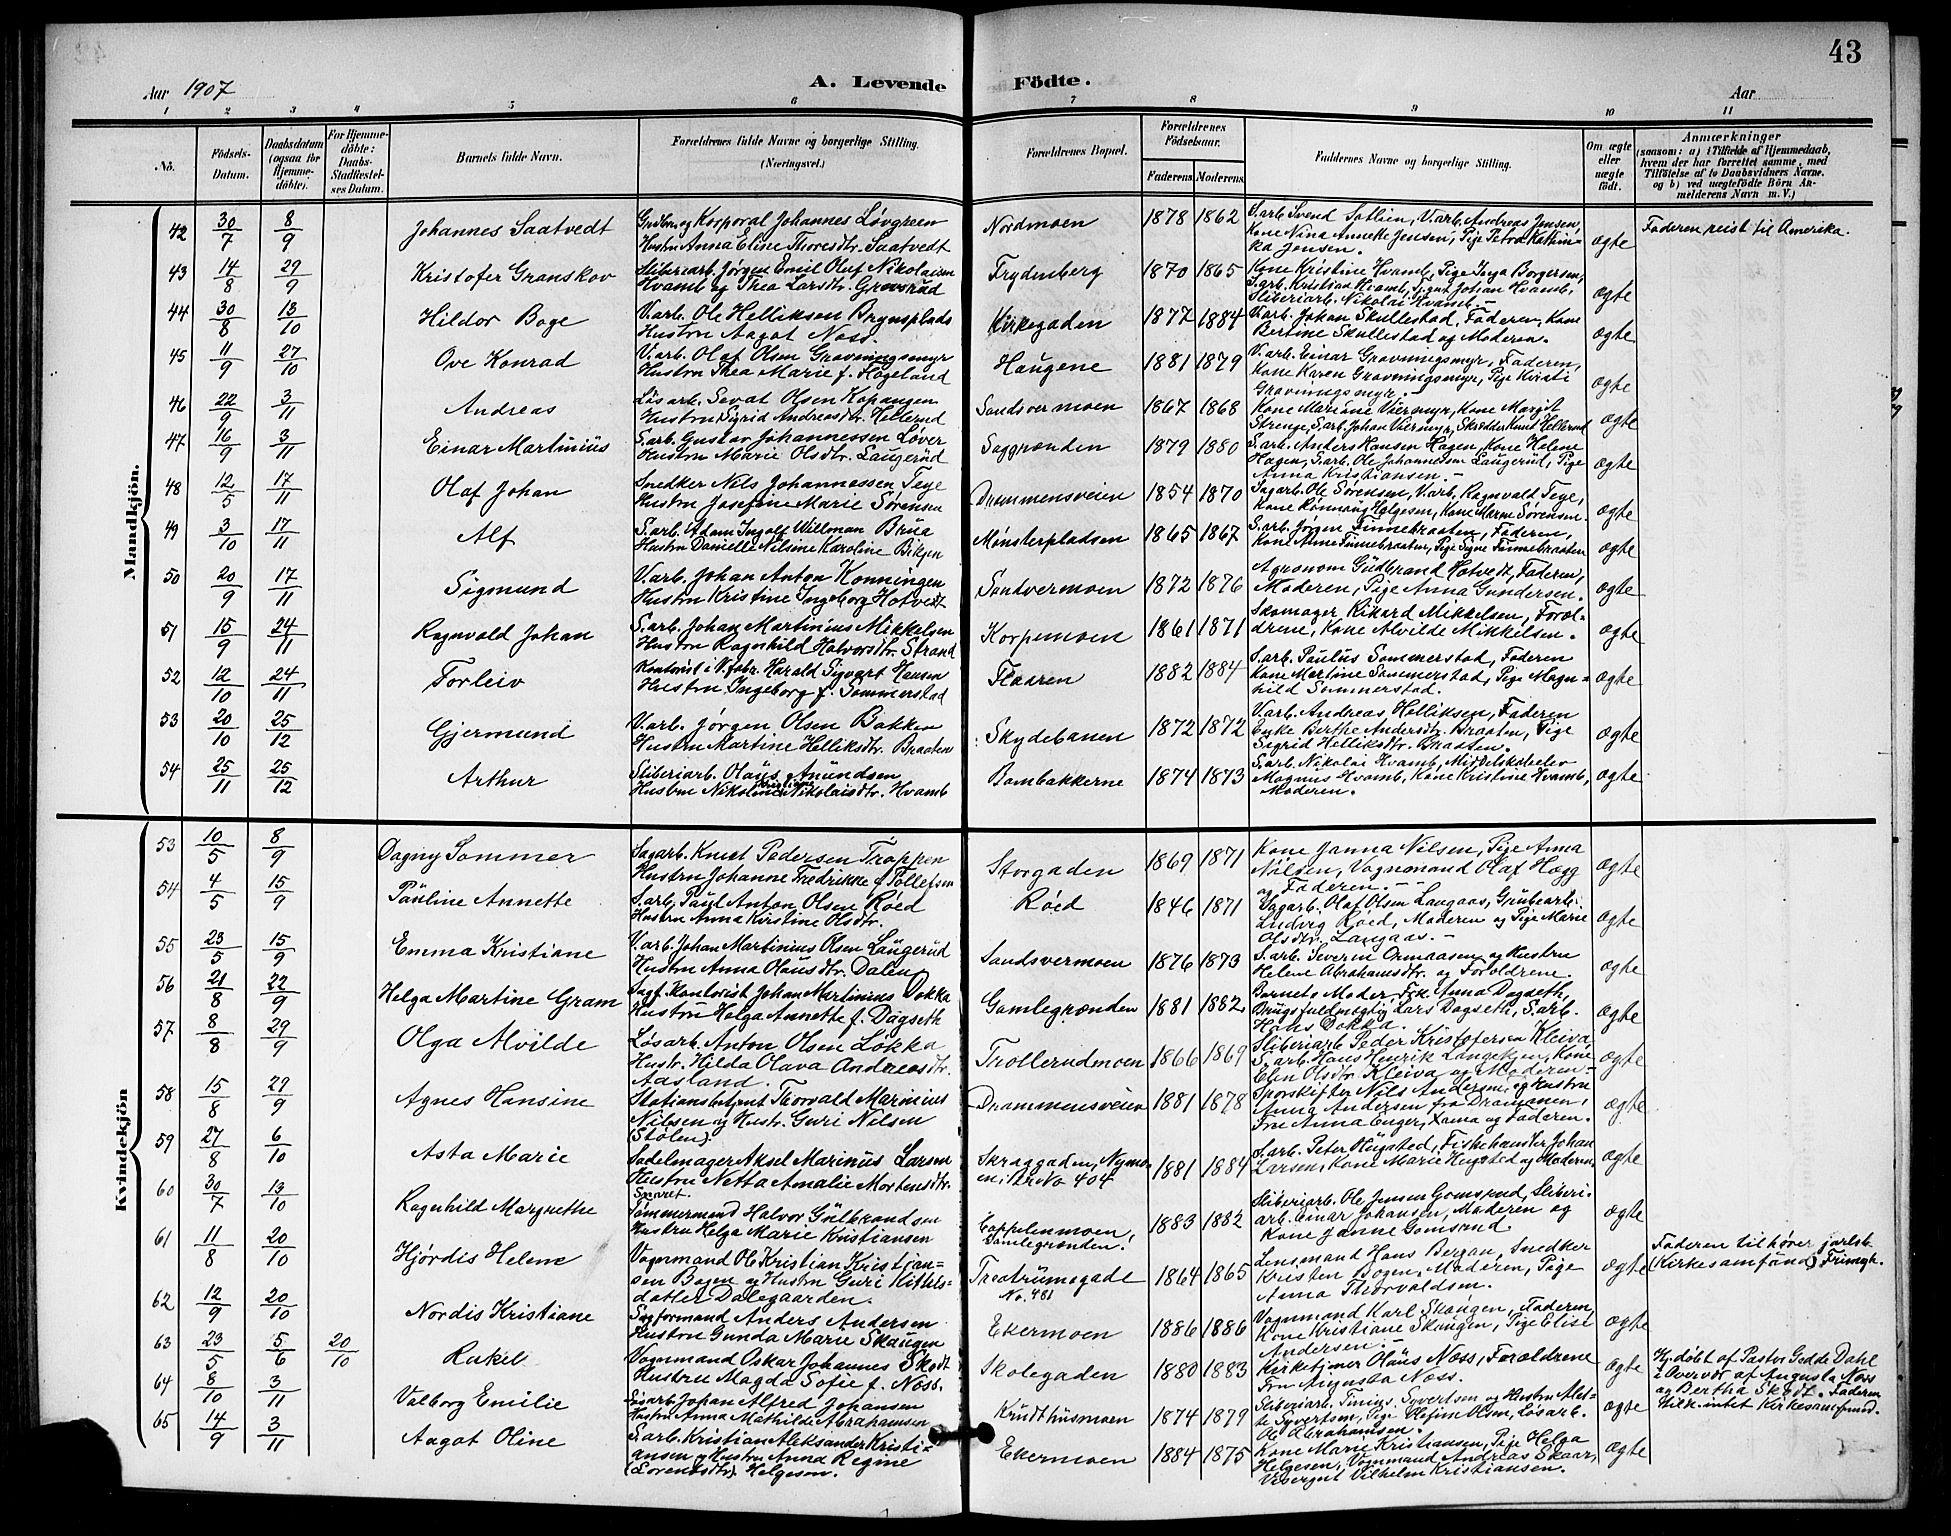 43
Aar 1907
A. Levende Födte.
Aar
1 2 3 4 5 6 7 8 9 10 11
No.
Födsels-Datum.
Daabsdatum (ogsaa for Hjemmedöbte).
For Hjemmedöbte: Daabs-Stadfæstelses Datum.
Barnets fulde Navn.
Forældrenes fulde Navne og borgerlige Stilling. (Næringsvei.)
Forældrenes Bopæl.
Forældrenes Födselsaar.
Faderens. Moderens.
Faddernes Navne og borgerlige Stilling.
Om ægte eller uægte født.
Anmærkninger
(saasom: a) i Tilfælde af Hjemmedaab, hvem der har forrettet samme, med Tilföielse af to Daabsvidners Navne, og b) ved uægtefödte Börn Anmelderens Navn m. V.)
Mandkjön.
42 30/7 8/9 Johannes Saatvedt
Korporal Johannes Løvgreen
Hustru Anna Eline Thoresdtr. Saatvedt
Nordmoen 1878 1862
S.arb. Svend Sotlien, V.arb. Andreas Jensen,
Kone Nina Anneke Jensen, Pige Petra Kathin-
ka Jensen.
ægte
Faderen reist til Amerika.
43 14/8 29/9 Kristofer Granskov
Sliberiarb. Jørgen Emil Olaf Nikolaisen
Hvamb og Thea Larsdtr. Grovsrud
Frydenberg 1870 1865
Kone Kristine Hvamb, Pige Inga Borgersen,
S.arb. Kristian Hvamb, Johan Hvamb,
Sliberiarb. Nikolai Hvamb.
ægte
44 30/8 13/10 Hildor Boge
V.arb. Ole Helliksen Brynsplads
Hustru Aagot Noss.
Kirkegaden 1877 1884
V.arb. Johan Skullestad, Faderen, Kone
Bertine Skullestad og Moderen.
ægte
45 11/9 27/10 Ove Konrad
V.arb. Olaf Olsen Gravningsmyr
Hustru Thea Marie f. Hogeland
Haugene 1881 1879
V.arb. Einar Gravningsmyr, Faderen,
Kone Karen Gravningsmyr, Pige Kirsti
Gravningsmyr.
ægte
46 22/9 3/11 Andreas
Løsarb. Sevat Olsen Kopangen
Hustru Sigrid Andreasdtr. Hellerud
Sandsvermoen 1867 1868
Kone Mariane Viermyr, Kone Margit
Skrenge, S.arb. Johan Viermyr, Skrædder Knut Hellerud
ægte
47 16/9 3/11 Einar Martinius
S.arb. Gustav Johannessen Løver
Hustru Marie Olsdtr. Laugerud
Saggrænden 1879 1880
S.arb. Anders Hansen Hagen, Kone Helene
Hagen, S.arb. Ole Johannesen Laugerud, Pige
Anna Kristiansen.
ægte
48 12/5 17/11 Olaf Johan
Snedker Nils Johannessen Teye
Hustru Josefine Marie Sørensen
Drammensveien 1854 1870
Sagarb. Ole Sørensen, V.arb. Ragnvald Teye,
Kone Rønnaug Helgesen, Kone Maren Sørensen.
ægte
49 3/10 17/11 Alf
S.arb. Adam Ingolf Willman Brua
Hustru Danielle Nilsine Karoline
Mønsterpladsen 1865 1867
S.arb. Jørgen Finnebraaten, Faderen,
Kone Anne Finnebraaten, Pige Signe Finnebraaten
ægte
50 20/9 17/11 Sigmund
V.arb. Johan Anton Konningen
Hustru Kristine Ingeborg Hotvedt
Sandsvermoen 1872 1876
Agronom Gudbrand Hotvedt, Faderen,
Moderen, Pige Anna Gundersen.
ægte
51 15/9 24/11 Ragnvald Johan
S.arb. Johan Martinius Mikkelsen
Hustru Ragnhild Halvorsdtr. Strand
Korpemoen 1861 1871
Skomager Rikard Mikkelsen, Foræl-
drene, Kone Alvilde Mikkelsen.
ægte
52 12/10 24/11 Torleiv
Kontorist i V.fabr. Harald Sigvart Hansen
Hustru Ingeborg f. Sommerstad
Flaaren 1882 1884
S.arb. Paulus Sommerstad, Faderen
Kone Martine Sommerstad, Pige Magn-
hild Sommerstad.
ægte
53 20/10 25/12 Gjermund
V.arb. Jørgen Olsen Bakken
Hustru Martine Helliksdtr. Braaten
Skydebanen 1872 1872
V.arb. Andreas Helliksen, Faderen
Enke Berthe Andersdtr. Braaten, Pige
Sigrid Helliksdtr. Braaten.
ægte
54 25/11 25/12 Arthur
Sliberiarb. Olaus Amundsen
Hustru Nikoline Kristiane Nikolaisdtr. Hvamb
Bambakkerne 1874 1873
S.arb. Nikolai Hvamb, Middelskoleelev
Magnus Hvamb, Kone Kristine Hvamb,
Moderen.
ægte
Kvindekjön
53 10/5 8/9 Dagny Sommer
Sagarb. Knut Pedersen Trappen
Hustru Johanne Fredrikke f. Tollefsen
Storgaden 1869 1871
Kone Janna Nilsen, Pige Anna
Nilsen, Vognmand Olaf Hogg
og Faderen.
ægte
54 4/5 15/9 Pauline Annette
S.arb. Paul Anton Olsen Røed
Hustru Anna Kirstine Olsdtr.
Røed 1846 1871
Sagarb. Olaf Olsen Langaas, Grubearb.
Ludvig Røed, Moderen og Pige Marie
Olsdtr. Langaas.
ægte
55 23/5 15/9 Emma Kristiane
V.arb. Johan Martinius Olsen Laugerud
Hustru Anna Olausdtr. Dalen
Sandsvermoen 1876 1873
S.arb. Severin Ormaasen og Hustru
Helene Abrahamsdtr. og Forældrene.
ægte
56 21/8 22/9 Helga Martine Gram
Kontorist Johan Martinius Dokka
Hustru Helga Annette f. Dagseth
Gamlegrænden 1881 1882
Barnets Moder, Frk. Anna Dagseth,
Brugsfuldmægtig Lars Dagseth, S.arb.
Hans Dokka.
ægte
57 8/8 29/9 Olga Alvilde
Løsarb. Anton Olsen Løkka
Hustr. Hilda Olava Andreasdtr.
Aasland.
Trollerudmoen 1866 1869
Sliberiarb. Peder Kristofersen Kleiva
S.arb. Hans Henrik Langekjen, Kone
Elen Olsdtr. Kleiva og Moderen
ægte
58 15/8 29/9 Agnes Hansine
Stationsbetjent Thorvald Marinius
Nilsen og Hustr. Guri Nilsen
(Stølen).
Drammensveien 1881 1878
Sporskifter Nils Andersen, og Hustru
Anna Andersen fra Drammen,
Fru Anna Enger, Sama og Faderen.
ægte
59 27/8 6/10 Asta Marie
Sadelmager Aksel Marinus Larsen
Hustru Netta Amalie Mortensdtr.
Snaret.
Skraggaden, Nymo-
en, Mtr No 404
1881 1884
S.arb. Peter Hugsted, Fiskehandler Johan
Larsen, Kone Marie Hugsted og Moderen
ægte
60 30/7 13/10 Ragnhild Margrethe
Tømmermand Halvor Gulbrandsen
Hustru Helga Marie Kristiansen
Cappelenmoen,
Gamlegrænden.
1883 1882
Sliberiarb. Ole Jensen Gomsrud, Sliberi-
arb. Einar Johansen, Moderen og
Kone Janne Gomsrud.
ægte
61 11/8 20/10 Hjørdis Helene
Vognmand Ole Kristian Kristian-
sen Bogen og Hustru Guri Kittels-
datter Dalegaarden.
Treatrumsgade
No. 481
1864 1865
Lensmand Hans Bergan, Snedker
Kristen Bogen, Moderen, Pige
Anna Thorvaldsen.
ægte
Faderen tilhører jarlsb.
(Kirkesamfund) Frimgh.
62 12/9 20/10 Nordis Kristiane
Sagformand Anders Andersen
Hustru Gunda Marie Skaugen
Ekermoen 1886 1886
Vognmand Karl Skaugen, Faderen,
Kone Kristiane Skaugen, Pige Elise
Andersen.
ægte
63 23/5 5/6 20/10 Rakel
Vognmand Oskar Johannes Skødt
Hustru Magda Sofie f. Næss.
Skolegaden 1880 1883
Kirketjener Olaus Næss, Forældrene
Fru Augusta Næss.
ægte
Hj.døbt af Pastor Gedde Dahl
i Overvær af Augusta Næss
og Bertha Skødt. Faderen
tilh. intet Kirkesamfund.
64 8/10 3/11 Valborg Emilie
Johan Alfred Johansen
Hustru Anna Mathilde Abrahamsen
Krudthusmoen 1874 1879
Sliberiarb. Tinius Syvertsen og Hustru Alet-
te Syvertsen, Pige Olefine Olsen, Løsarb.
Ole Abrahamsen.
ægte
65 14/9 3/11 Aagot Oline
S.arb. Kristian Aleksander Kristi-
ansen og Hustru Anna Regine
(Lorentsdtr.) Helgesen.
Ekermoen 1884 1875
Kone Marie Kristiansen, Pige Helga
Helgesen, Vognmand Andreas Skaar,
Visergut Vilhelm Kristiansen.
ægte